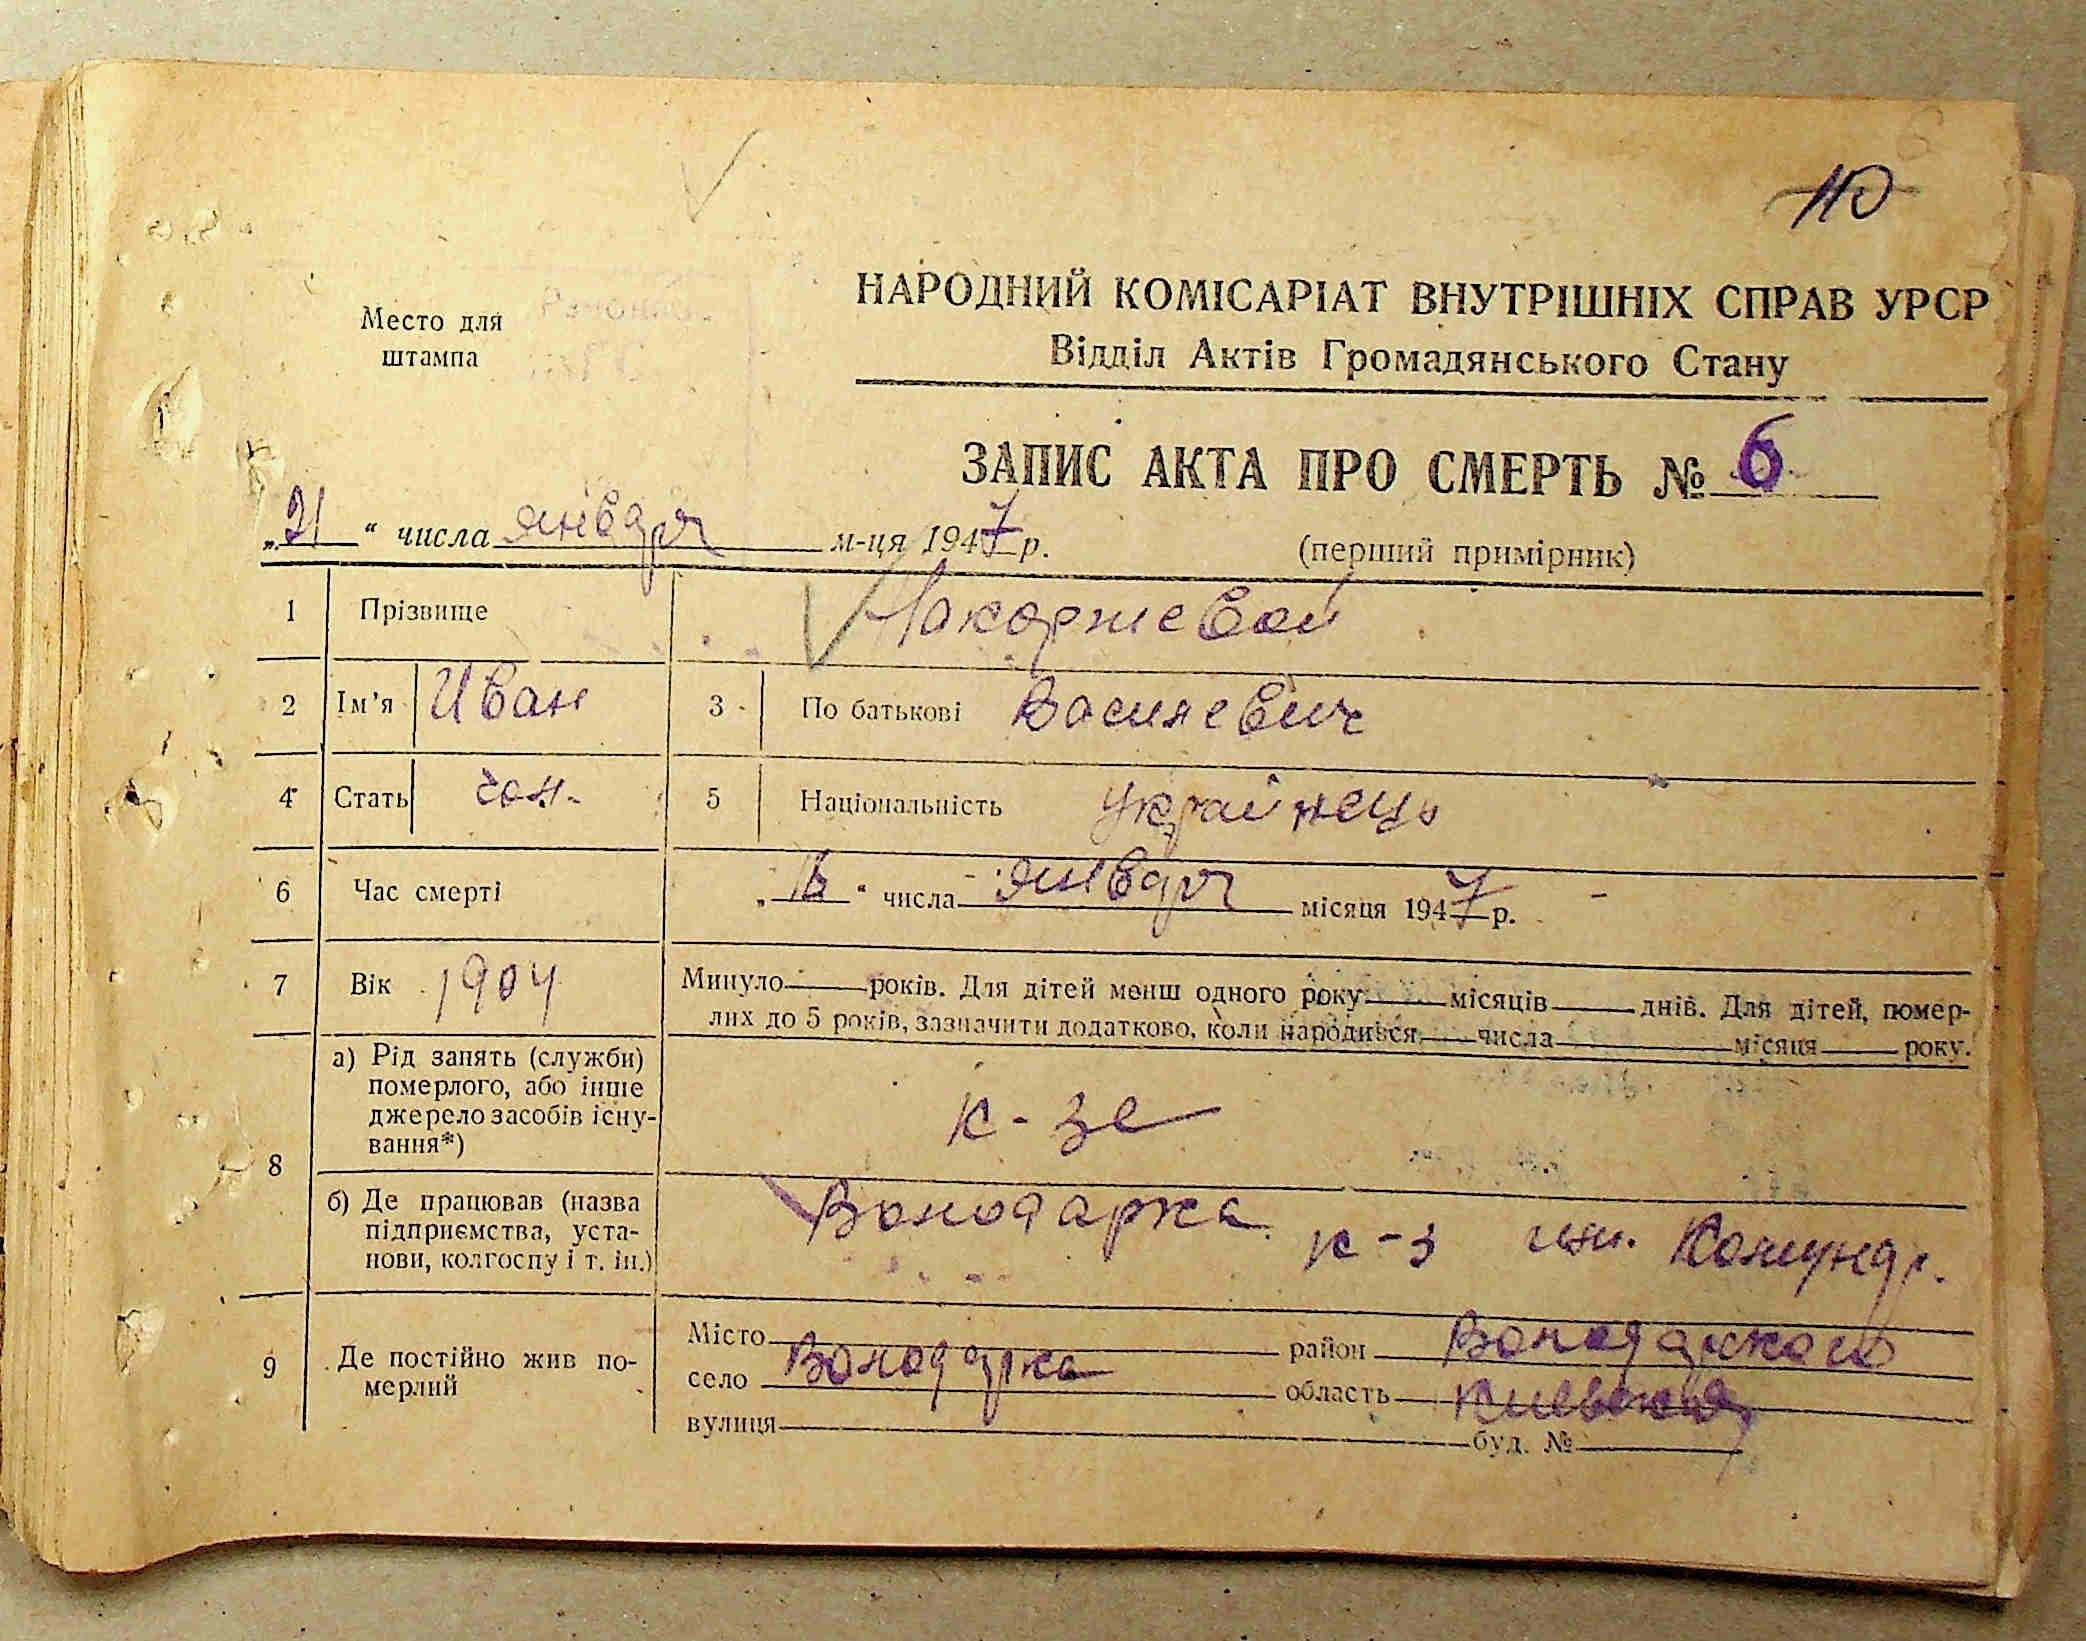 10
Место для
штампа
НАРОДНИЙ КОМІСАРІАТ ВНУТРІШНІХ СПРАВ УРСР
Відділ Актів Громадянського Стану
ЗАПИС АКТА ПРО СМЕРТЬ № 6
„21“ числа января м-ця 1947 р. (перший примірник)
1 Прізвище
2 Ім'я Иван 3 По батькові Василевич
4 Стать чол. 5 Національність українець
6 Час смерті „ “ числа января місяця 1947 р.
7 Вік 1904 Минуло року
років. Для дітей менш одного року місяців днів. Для дітей, помер-
лих до 5 років, зазначити додатково, коли народився числа місяця року.
8 а) Рід занять (служби)
померлого, або інше
джерело засобів існу-
вання*)
к-зе
б) Де працював (назва
підприємства, уста-
нови, колгоспу і т. ін.)
Володарка к-з им. Комунар.
9 Де постійно жив по-
мерлий
Місто район
село Володарка область Киевская
вулиця буд. №